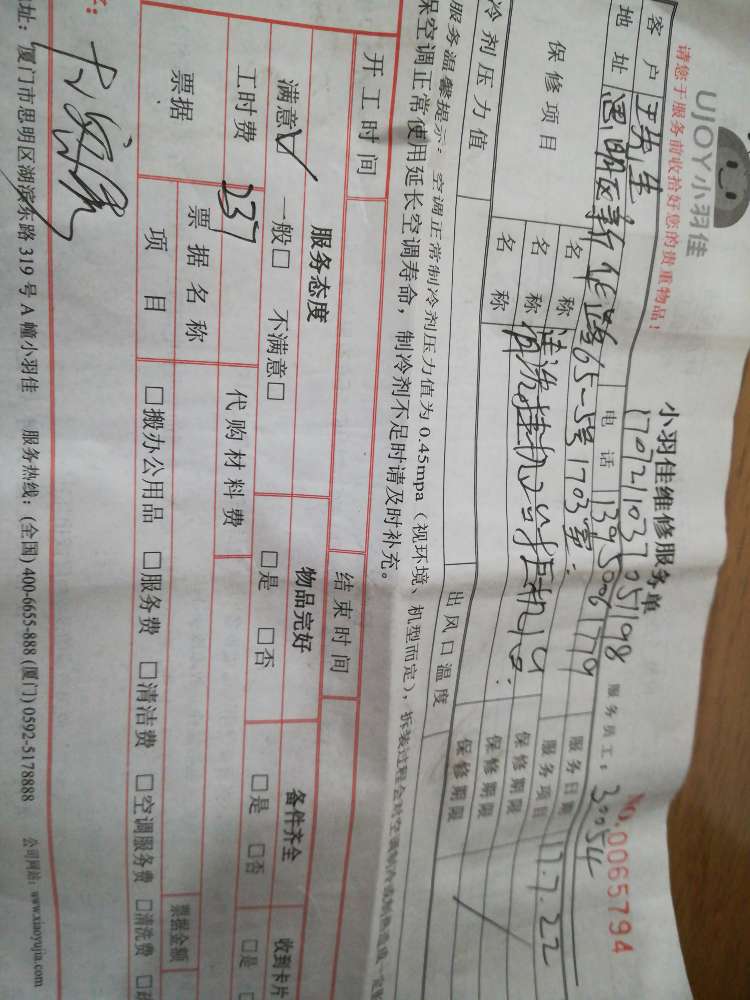 UJOY小羽佳
小羽佳维修服务单
No.0065794
请您于服务前收拾好您的贵重物品！
170721037051198
服务员工：30054
客户 王先生 电话 13950061779 服务日期 17.7.22
地址 思明区新华路65-5号1703室. 服务项目
保修项目 名称 清洗挂机2台柜机1台. 保修期限
名称 保修期限
名称 保修期限
冷剂压力值 出风口温度
服务温馨提示：空调正常制冷剂压力值为0.45mpa（视环境、机型而定），拆装过程会对空调制冷
保空调正常使用延长空调寿命，制冷剂不足时请及时补充。
开工时间 结束时间
服务态度 物品完好 备件齐全 收到卡片
满意☑ 一般□ 不满意□ □是 □否 □是 □否 □是
工时费 237 代购材料费
票据 票据名称 票据金额
项目 □搬办公用品 □服务费 □清洁费 □空调服务费 □清洗费
址：厦门市思明区湖滨东路319号A幢小羽佳 服务热线：(全国) 400-6655-888 (厦门) 0592-5178888 公司网站：www.xiaoyujia.com